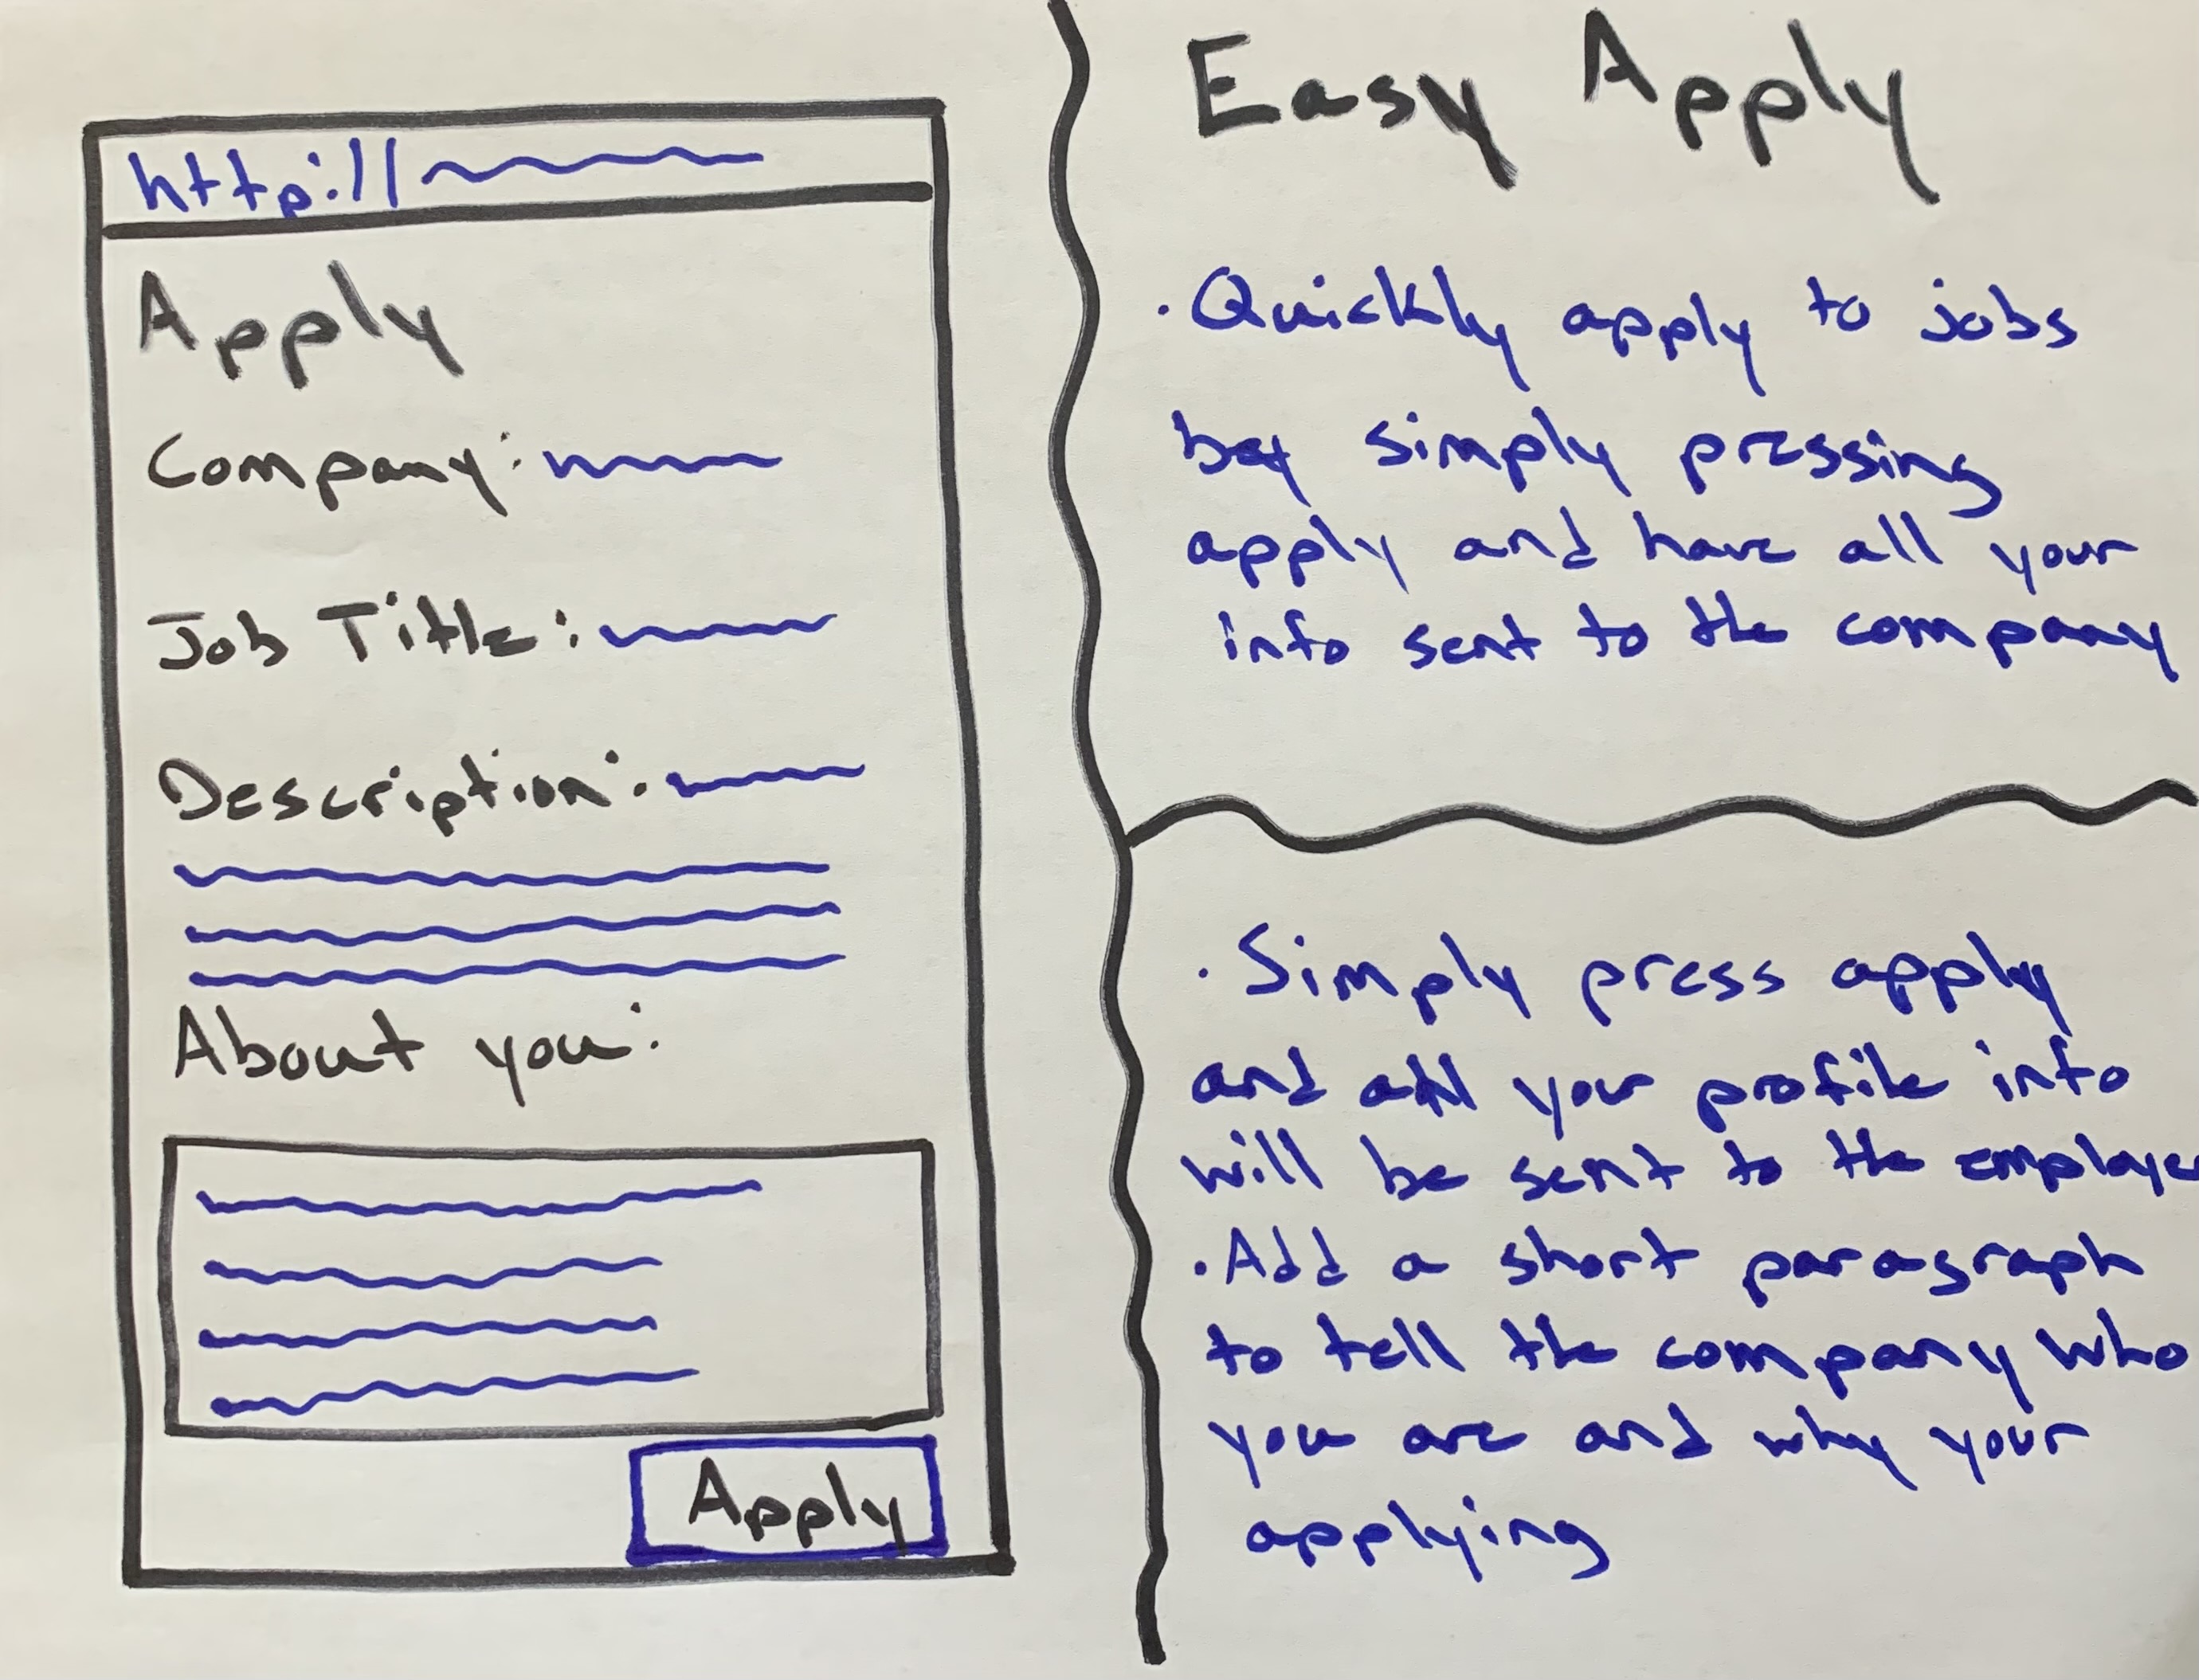 http://
Apply
Company:
Job Title:
Description:
About you:
Apply
Easy Apply
· Quickly apply to jobs
by simply pressing
apply and have all your
info sent to the company
· Simply press apply
and all your profile info
will be sent to the employer
· Add a short paragraph
to tell the company who
you are and why your
applying